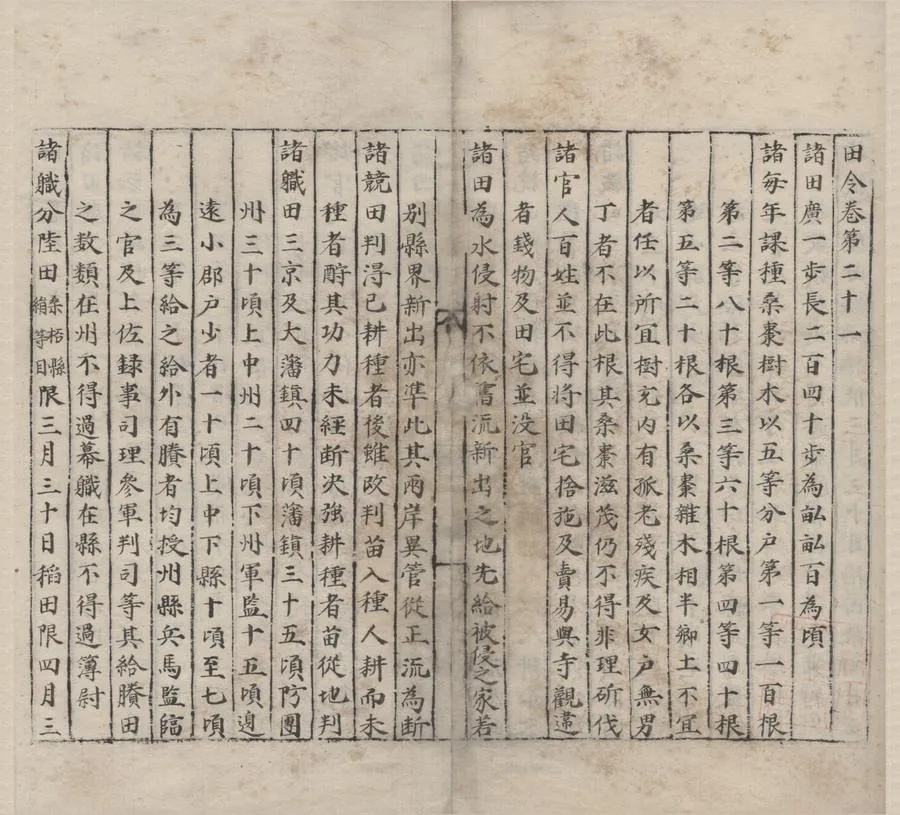 田令卷第二十一
諸田廣一步長二百四十步為畝畝百為頃
諸每年課種桑棗樹木以五等分户第一等一百根
第二等八十根第三等六十根第四等四十根
第五等二十根各以桑棗雜木相半鄉土不宜
者任以所宜樹充内有孤老殘疾及女户無男
丁者不在此根其桑棗滋茂仍不得非理斫伐
諸官人百姓並不得將田宅捨施及賣易與寺觀違
者錢物及田宅並没官
諸田為水侵射不依舊流新出之地先給被侵之家若
别縣界新出亦準此其兩岸異管從正流為斷
諸競田判得已耕種者後雖改判苗入種人耕而未
種者酧其功力未經断决強耕種者苗從地判
諸職田三京及大藩鎮四十頃藩鎮三十五頃防團
州三十頃上中州二十頃下州軍監十五頃邉
遠小郡户少者一十頃上中下縣十頃至七頃
為三等給之給外有賸者均授州縣兵馬監臨
之官及上佐録事司理參軍判司等其給賸田
之数類在州不得過幕職在縣不得過簿尉
諸職分陸田桑柘縣絹等目限三月三十日稻田限四月三